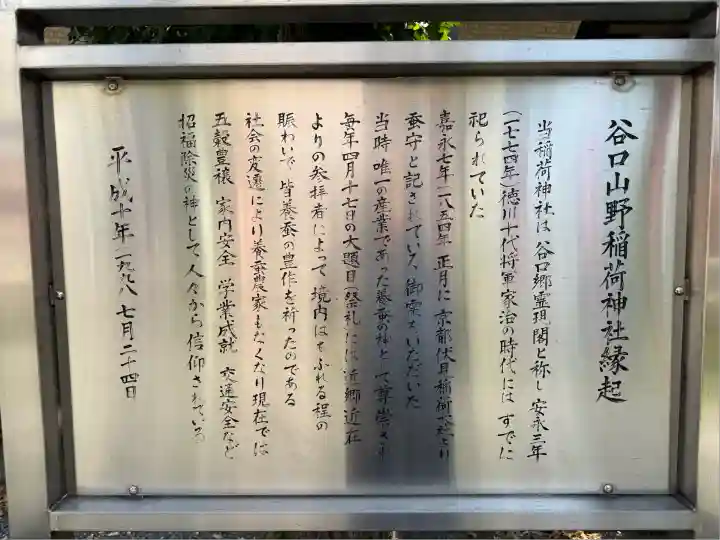 谷口山野稲荷神社縁起
当稲荷神社は 谷口郷霊現閣と称し 安永三年
(一七七四年)徳川十代将軍家治の時代には すでに
祀られていた
嘉永七年(一八五四年)正月に 京都伏見稲荷大社より
蚕守と記されている 御霊をいただいた
当時 唯一の産業であった養蚕の神として尊崇され
毎年四月十七日の大題目(祭礼)には 近郷近在
よりの参拝者によって 境内はあふれる程の
賑わいで 皆養蚕の豊作を祈ったのである
社会の変遷により養蚕農家もなくなり現在では
五穀豊穣 家内安全 学業成就 交通安全など
招福除災の神として 人々から信仰されている
平成十年(一九九八)七月二十四日